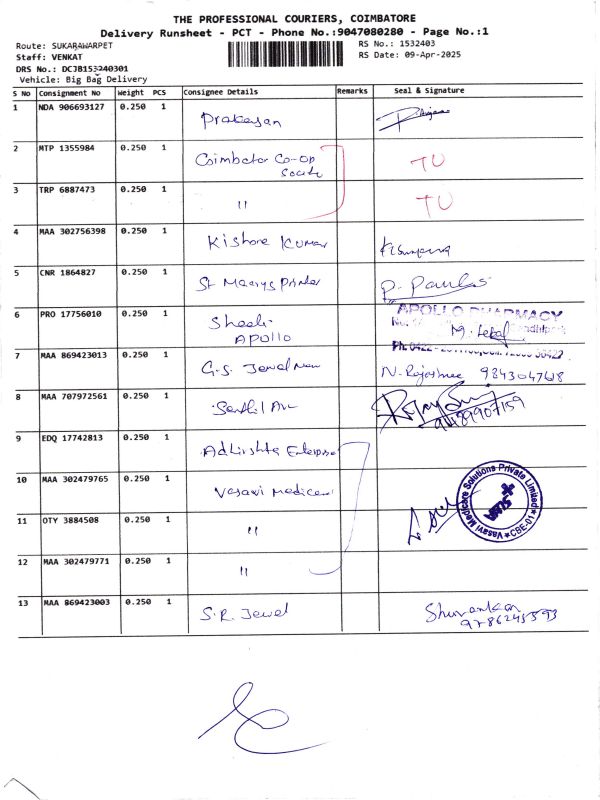 THE PROFESSIONAL COURIERS, COIMBATORE
Delivery Runsheet - PCT - Phone No.:9047080280 - Page No.:1
Route: SUKARAWARPET
Staff: VENKAT
DRS No.: DCJB153240301
Vehicle: Big Bag Delivery
RS No.: 1532403
RS Date: 09-Apr-2025
S No Consignment No Weight PCS Consignee Details Remarks Seal & Signature
1 NDA 906693127 0.250 1 Prakasan
2 MTP 1355984 0.250 1 Coimbator Co-op Society TU
3 TRP 6887473 0.250 1 " TU
4 MAA 302756398 0.250 1 Kishore Kumar
5 CNR 1864827 0.250 1 St Maarys Printer P. Paulos
6 PRO 17756010 0.250 1 Sheeli APOLLO APOLLO PHARMACY
7 MAA 869423013 0.250 1 G.S. Jewel N. Rajashree 9843047618
8 MAA 707972561 0.250 1 Senthil 9489907159
9 EDQ 17742813 0.250 1 Adhirshta Enterprise
10 MAA 302479765 0.250 1 Vasavi Medicare Vasavi Medicare Solutions Private Limited CBE-01
11 OTY 3884508 0.250 1 "
12 MAA 302479771 0.250 1 "
13 MAA 869423003 0.250 1 S.R. Jewel 9786245593